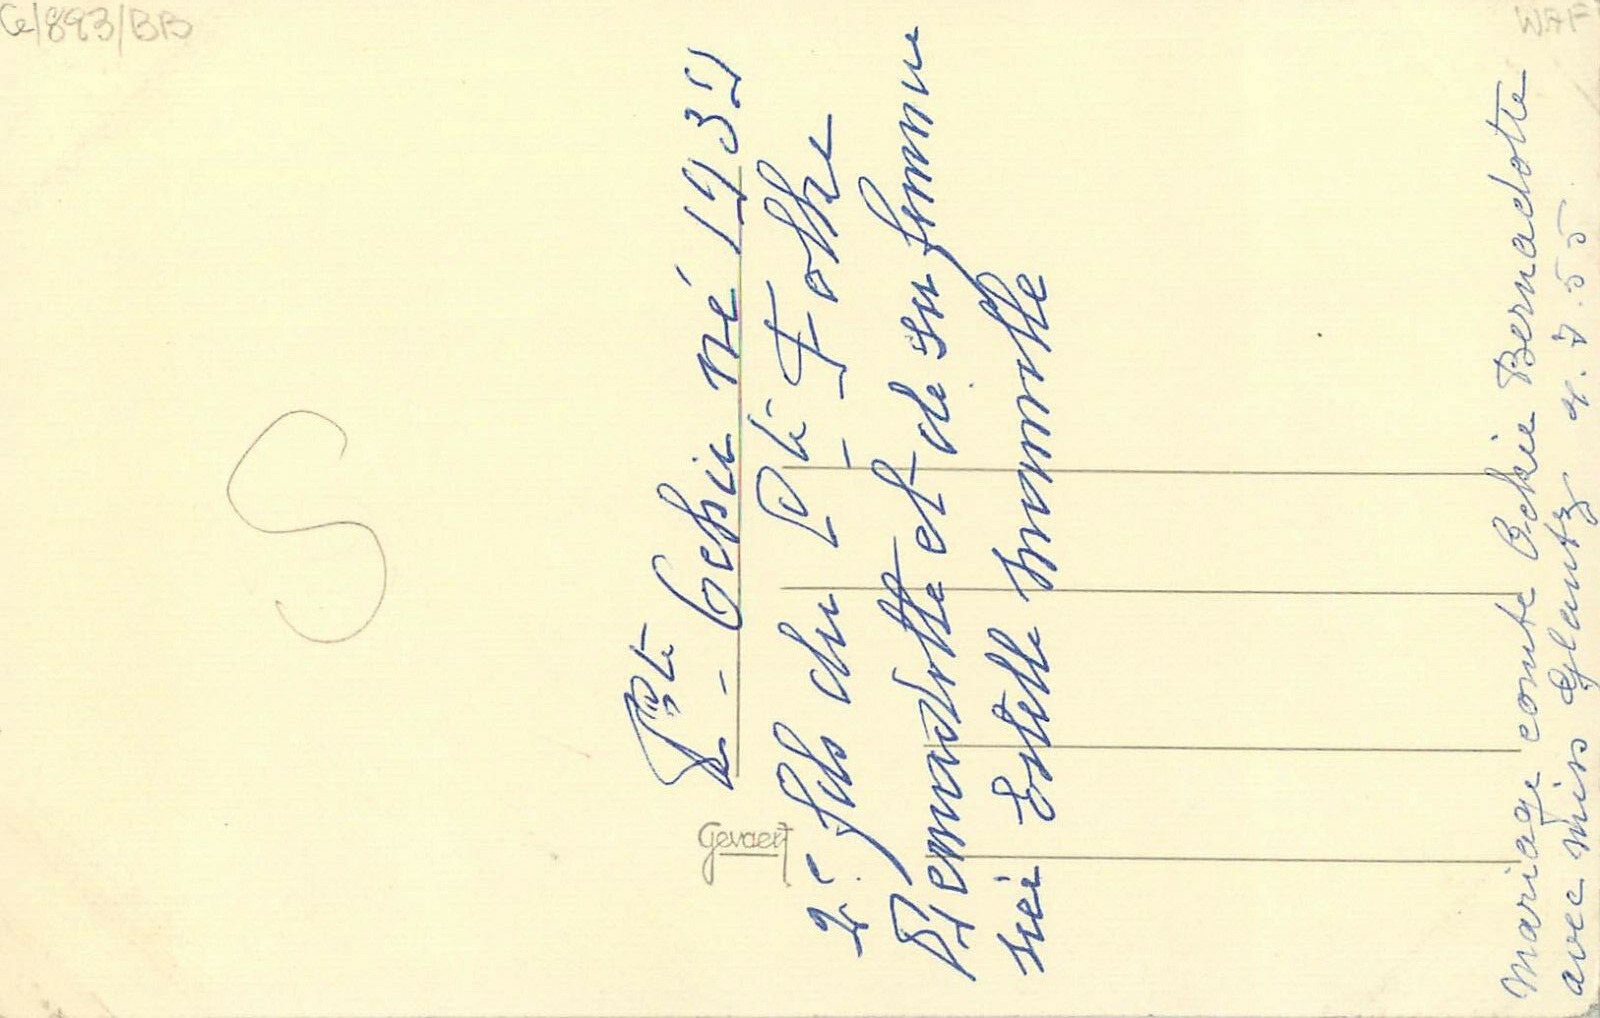 G/893/BB
WAF
S
Cte Eckie né 1934
2e fils du Cte Folke
Bernadotte et de sa femme
née Estelle Manville
Gevaert
Mariage comte Eckie Bernadotte
avec Miss Glantz 9.7.55